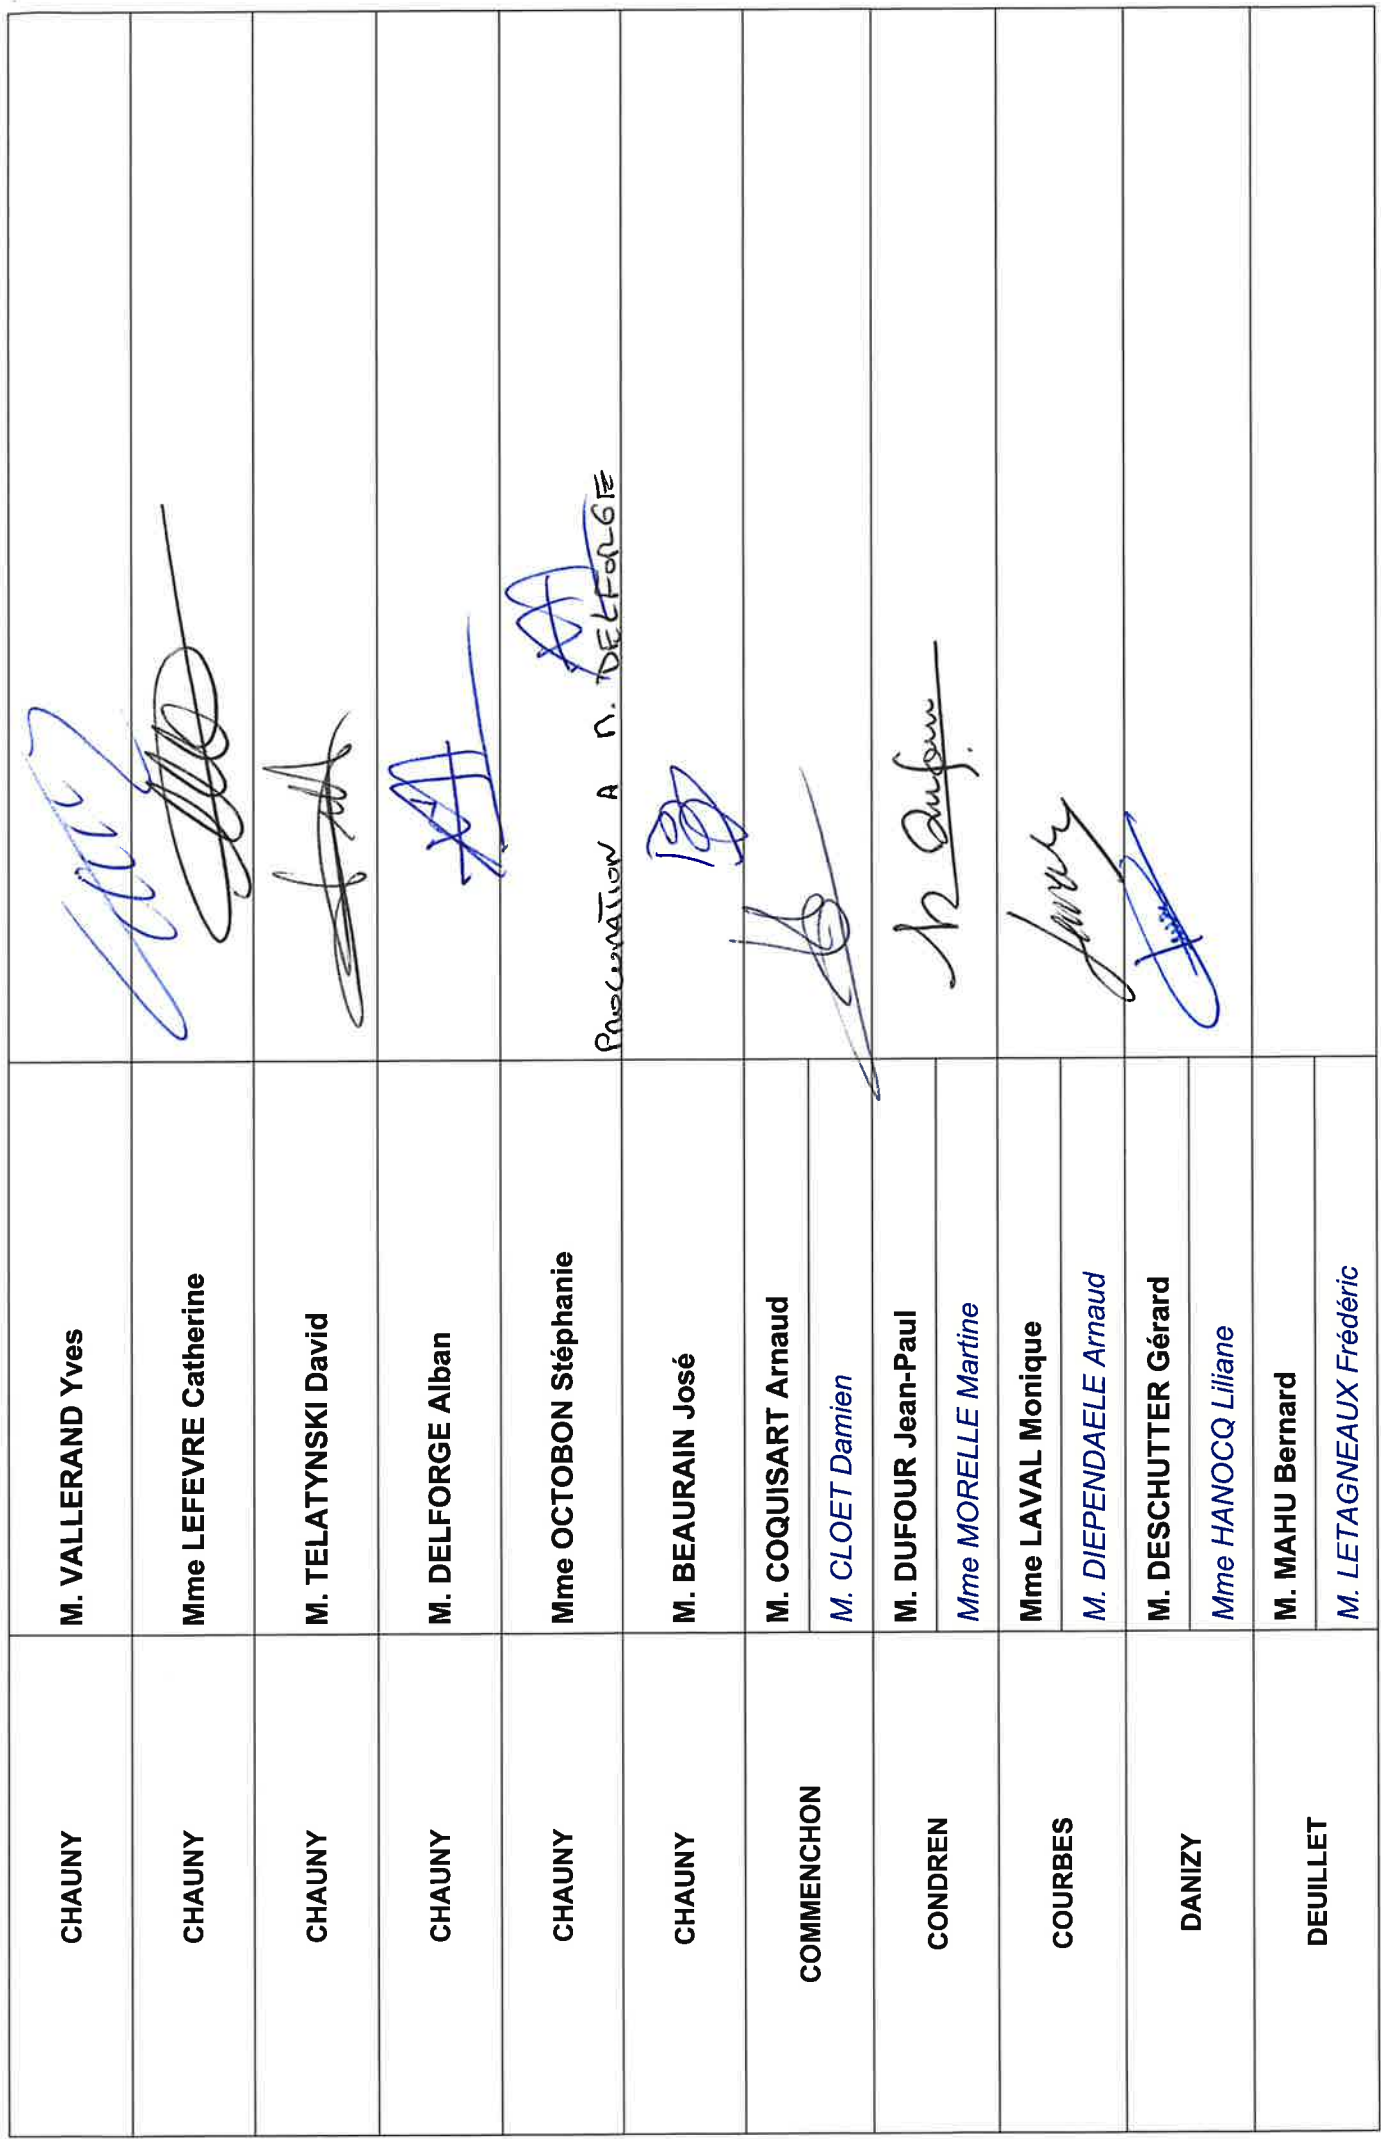 CHAUNY
M. VALLERAND Yves
CHAUNY
Mme LEFEVRE Catherine
CHAUNY
M. TELATYNSKI David
CHAUNY
M. DELFORGE Alban
CHAUNY
Mme OCTOBON Stéphanie
PROCURATION A M. DELFORGE
CHAUNY
M. BEAURAIN José
COMMENCHON
M. COQUISART Arnaud
M. CLOET Damien
CONDREN
M. DUFOUR Jean-Paul
Dufour
Mme MORELLE Martine
COURBES
Mme LAVAL Monique
M. DIEPENDAELE Arnaud
DANIZY
M. DESCHUTTER Gérard
Mme HANOCQ Liliane
DEUILLET
M. MAHU Bernard
M. LETAGNEAUX Frédéric